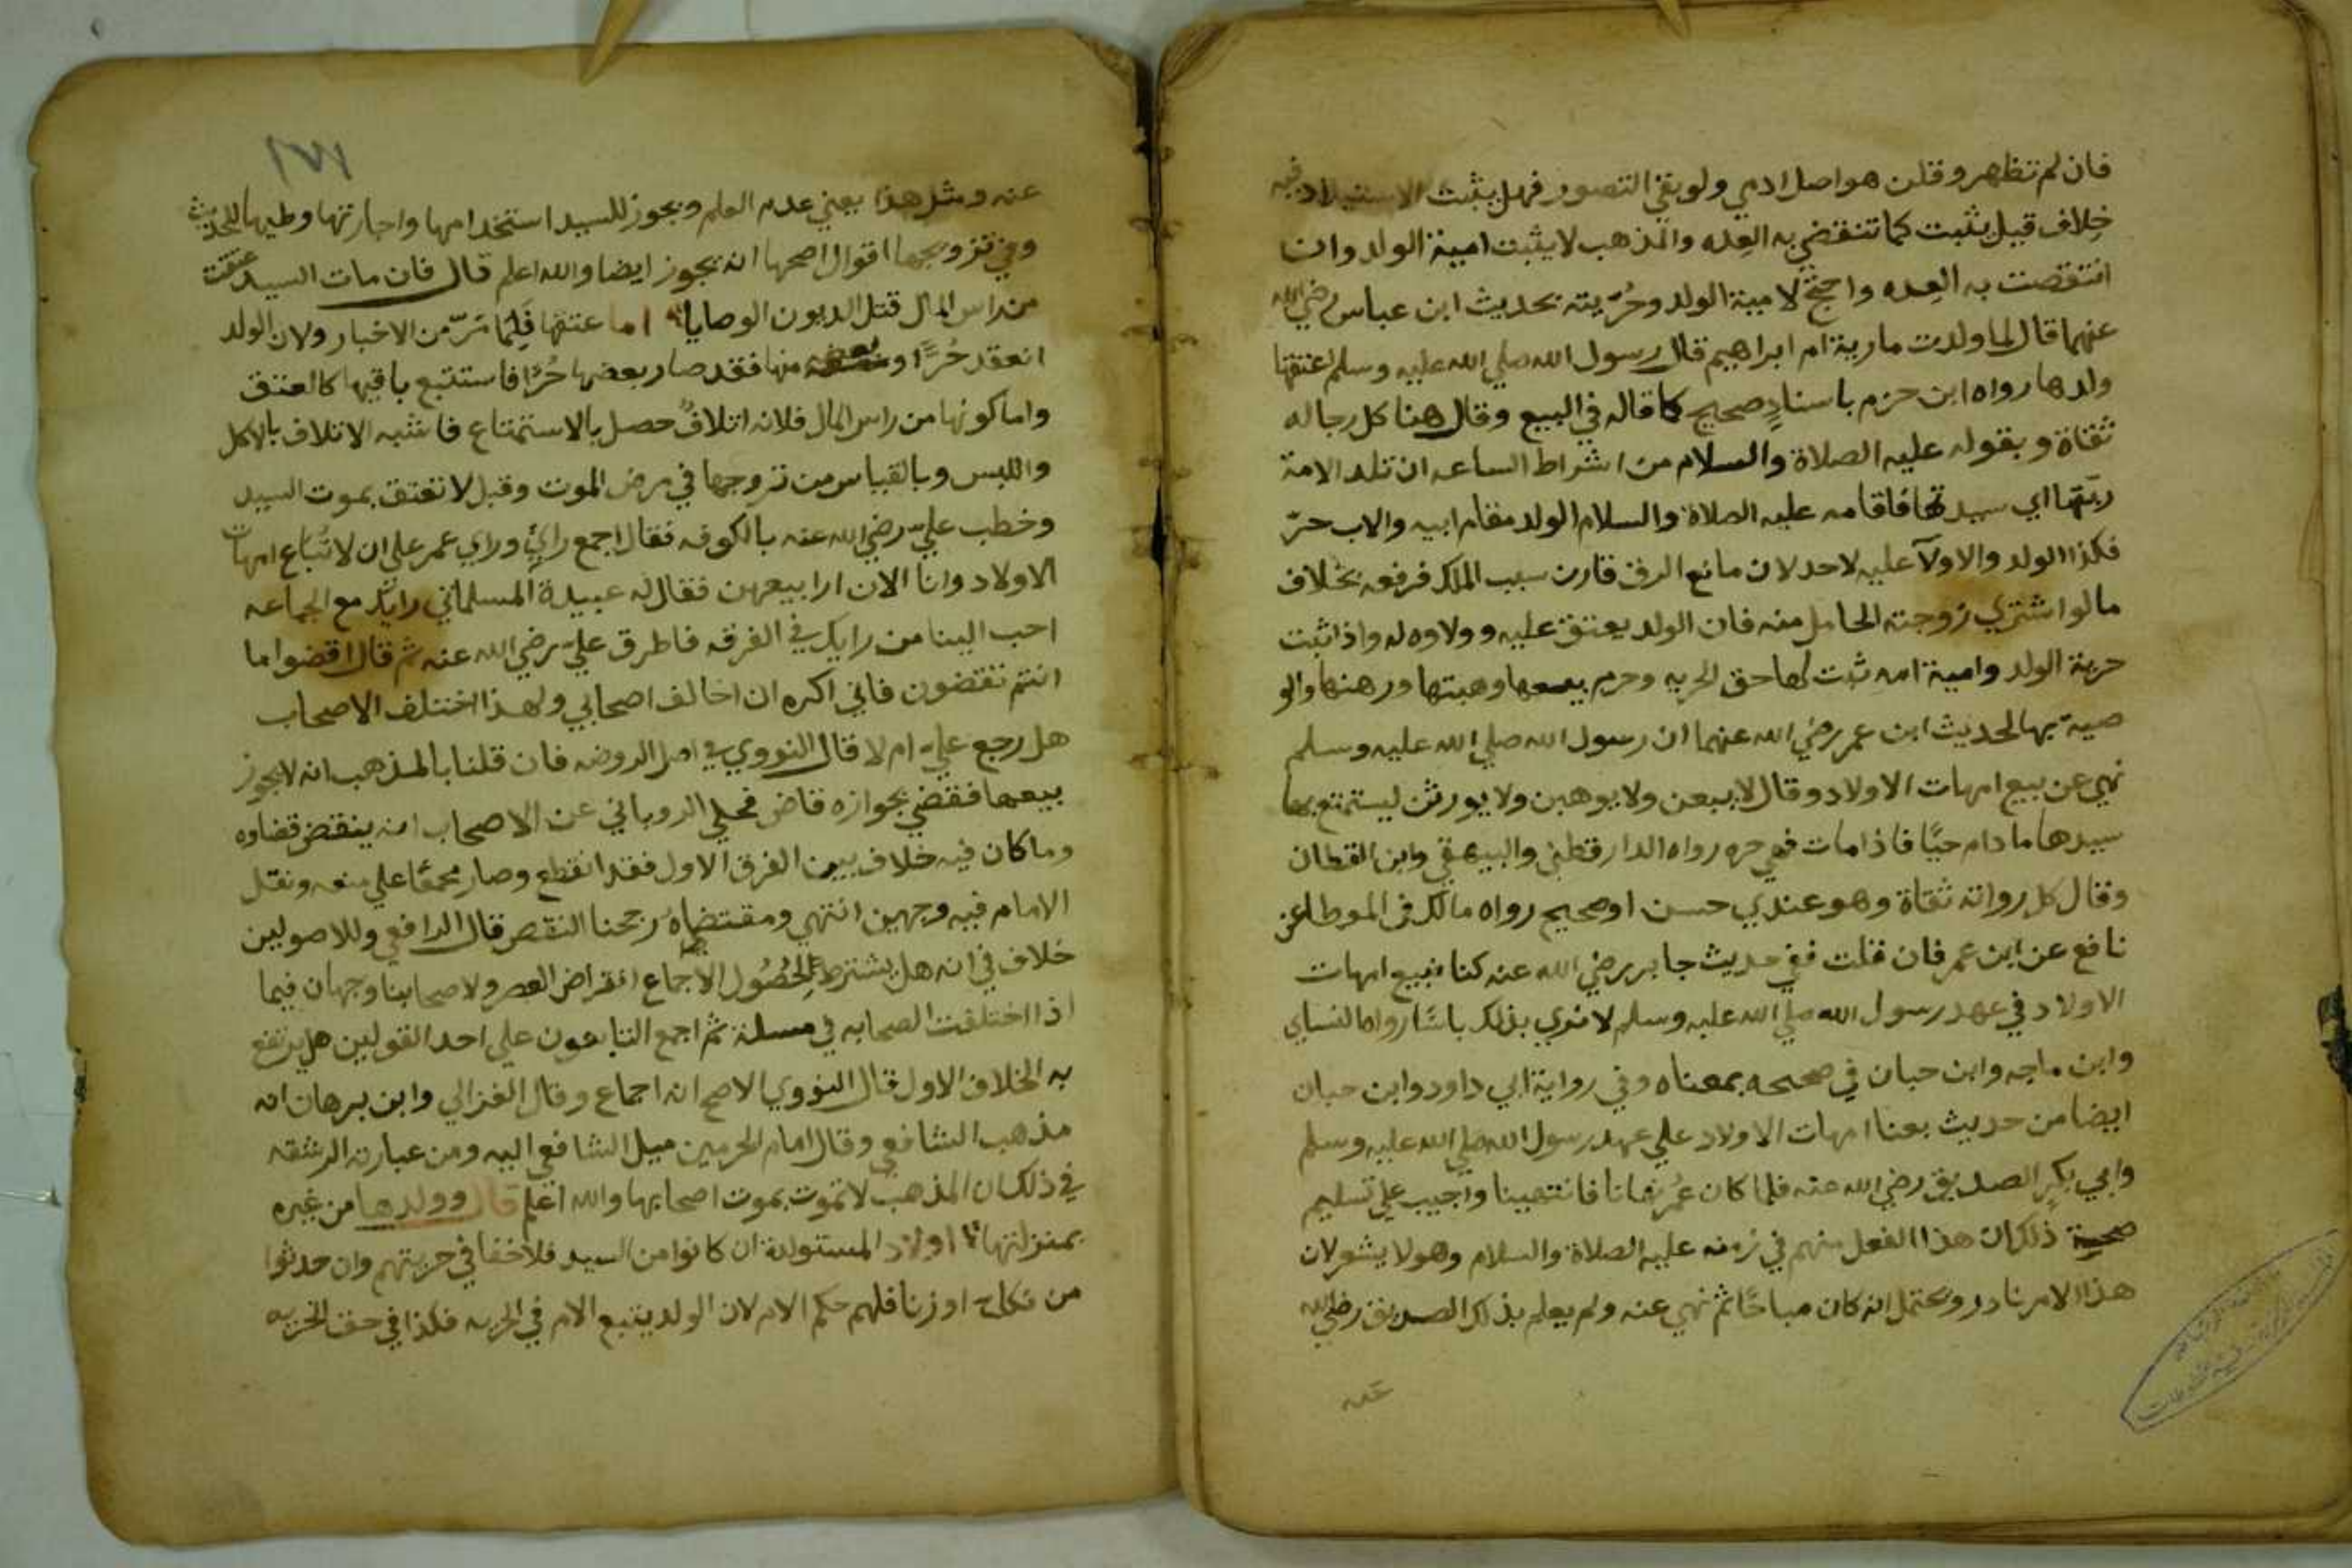 فان لم تظهر وقلن هو اصل ادمي ولو بقي التصور فهل يثبت الاستيلاد فيه
خلاف قيل يثبت كما تنقضي به العده والمذهب لا يثبت امية الولد وان
انتقضت به العده واحتج لامية الولد وحُرّيته بحديث ابن عباس رضي الله
عنهما قال لما ولدت مارية ام ابراهيم قال رسول الله صلي الله عليه وسلم اعتقها
ولدها رواه ابن حزم باسنادٍ صحيح كما قاله في البيع وقال هنا كل رجاله
ثقاة و بقوله عليه الصلاة والسلام من اشراط الساعه ان تلد الامة
ربّتها اي سيدتها فاقامه عليه الصلاة والسلام الولد مقام ابيه والاب حرّ
فكذا الولد والاولآ عليه لاحد لان مانع الرق قارن سبب الملك فرفعه بخلاف
ما لو اشتري زوجته الحامل منه فان الولد يعتق عليه وولاوه له واذا ثبت
حرية الولد وامية امه ثبت لها حق الحريه وحرم بيعها وهبتها ورهنها والو
صية بها لحديث ابن عمر رضي الله عنهما ان رسول الله صلي الله عليه وسلم
نهي عن بيع امهات الاولاد وقال لا يبعن ولا يوهبن ولا يورثن ليستمتع بها
سيدها ما دام حيًا فاذا مات فهي حره رواه الدارقطني والبيهقي وابن القطان
وقال كل رواته ثقاة وهو عندي حسن او صحيح رواه مالك في الموطا عن
نافع عن ابن عمر فان قلت ففي حديث جابر رضي الله عنه كنا نبيع امهات
الاولاد في عهد رسول الله صلي الله عليه وسلم لا نري بذلك باسًا رواه النساي
وابن ماجه وابن حبان في صحيحه بمعناه وفي رواية ابي داود وابن حبان
ايضا من حديث بعنا امهات الاولاد علي عهد رسول الله صلي الله عليه وسلم
وابي بكرٍ الصديق رضي الله عنه فلما كان عُمر نهانا فانتهينا واجيب علي تسليم
صحية ذلك ان هذا الفعل منهم في زمنه عليه الصلاة والسلام وهو لا يشعر لان
هذا الامر نادر ويحتمل انه كان مباحًا ثم نهي عنه ولم يعلم بذلك الصديق رضي الله
عنه
١٧١
عنه ومثل هذا يعني عدم العلم ويجوز للسيد استخدامها واجارتها وطيها للحديث
وفي تزويجها اقوال اصحها انه يجوز ايضا والله اعلم قال فان مات السيد عتقت
من راس المال قبل الديون الوصايا اما عتقها فلِما مَرّ من الاخبار ولان الولد
انعقد حُرًّا و بعضه منها فقد صار بعضها حُرًّا فاستتبع باقيها كالعتق
واما كونها من راس المال فلانه اتلافٌ حصل بالاستمتاع فاشبه الاتلاف بالاكل
واللبس وبالقياس من تزوجها في مرض الموت وقيل لا تعتق بموت السيد
وخطب عليّ رضي الله عنه بالكوفه فقال اجمع رايي وراي عمر علي ان لا تُباع امهات
الاولاد وانا الان ارا بيعهن فقال له عبيدة المسلماني رايك مع الجماعه
احب الينا من رايك في الفرقه فاطرق عليّ رضي الله عنه ثم قال اقضوا ما
انتم تقضون فاني اكره ان اخالف اصحابي ولهذا اختلف الاصحاب
هل رجع علي ام لا قال النووي في اصل الروضه فان قلنا بالمذهب انه لا يجوز
بيعها فقضي بجوازه قاض فحكي الروياني عن الاصحاب انه ينقض قضاوه
وما كان فيه خلاف بين الفرق الاول فقد انقطع وصار مجمعًا علي منعه ونقل
الامام فيه وجهين انتهي ومقتضاهُ رجحنا النقص قال الرافعي وللاصولين
خلاف في انه هل يشترط لِحُصُول الاجماع انقراض العصر ولاصحابنا وجهان فيما
اذا اختلفت الصحابه في مسلة ثم اجمع التابعون علي احد القولين هل يرتفع
به الخلاف الاول قال النووي الاصح انه اجماع وقال الغزالي وابن برهان انه
مذهب الشافعي وقال امام الحرمين ميل الشافعي اليه ومن عبارته الرشقه
في ذلك ان المذهب لا تموت بموت اصحابها والله اعلم قال وولدها من غيره
بمنزلتها اولاد المستولدة ان كانوا من السيد فلا خفا في حريتهم وان حدثوا
من نكاح او زنا فلهم حكم الام لان الولد يتبع الام في الحريه فكذا في حق الحريه